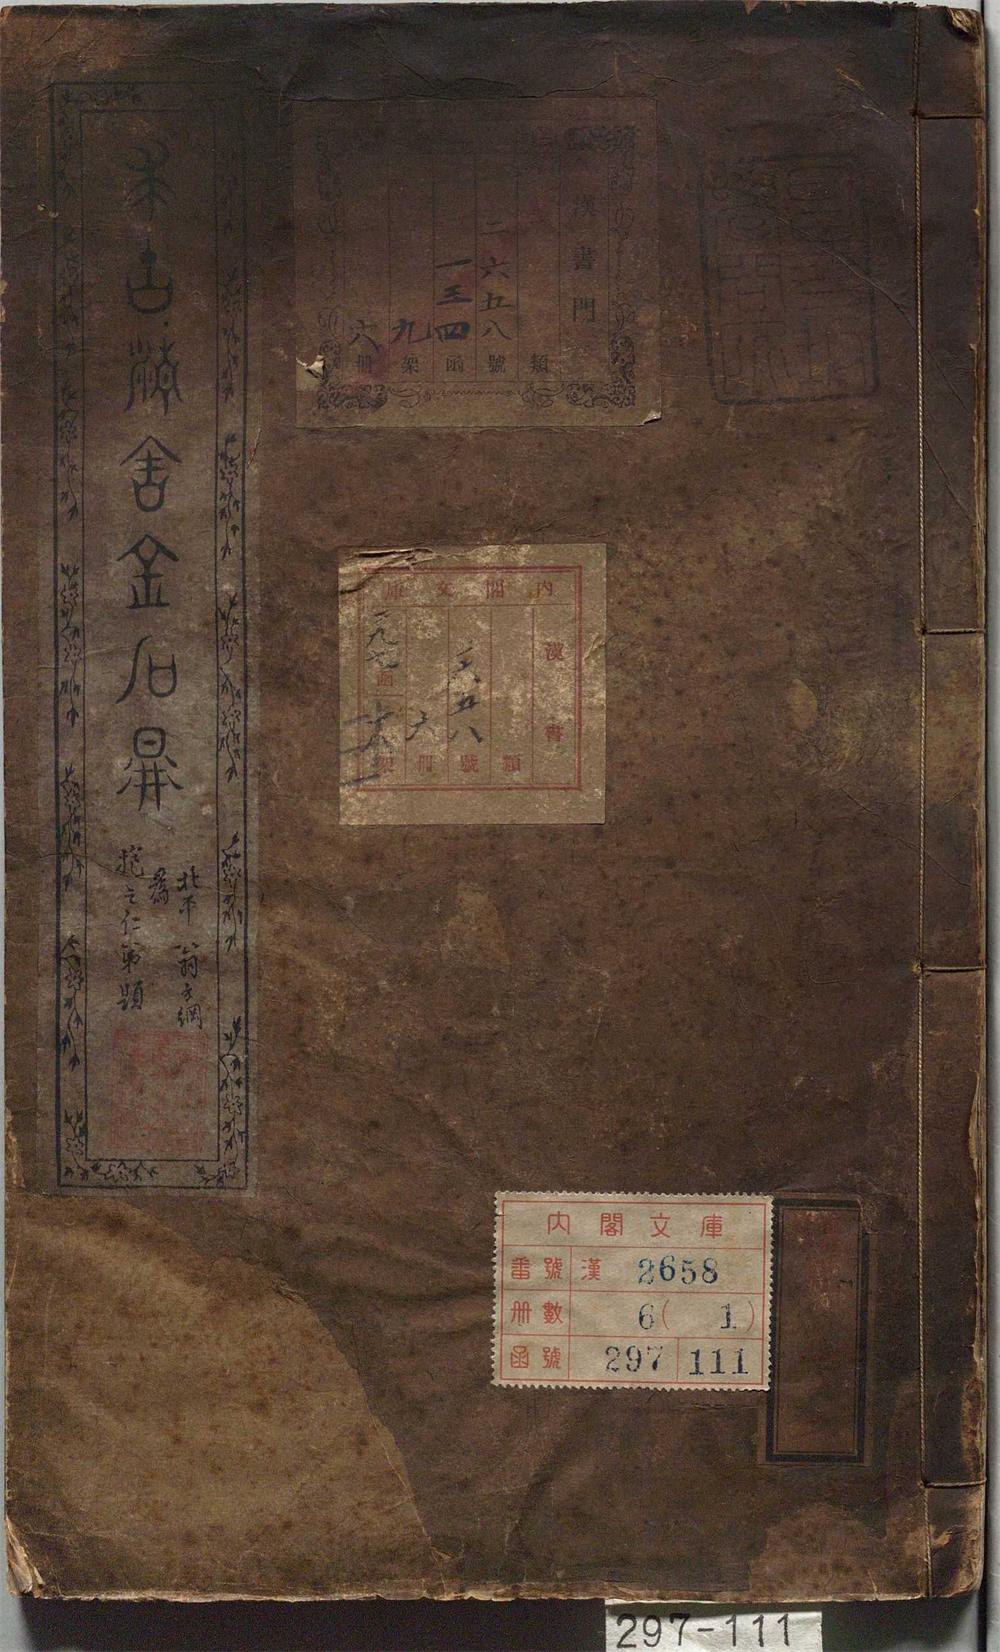 求古精舍金石
北平翁方綱
為
抱之仁弟題
漢書門
類
二六五八號
一三四函
九架
六冊
内閣文庫
漢書
類
二六五八號
六冊
二九七函
架
内閣文庫
番號 漢 2658
冊數 6(1)
函號 297 111
297-111